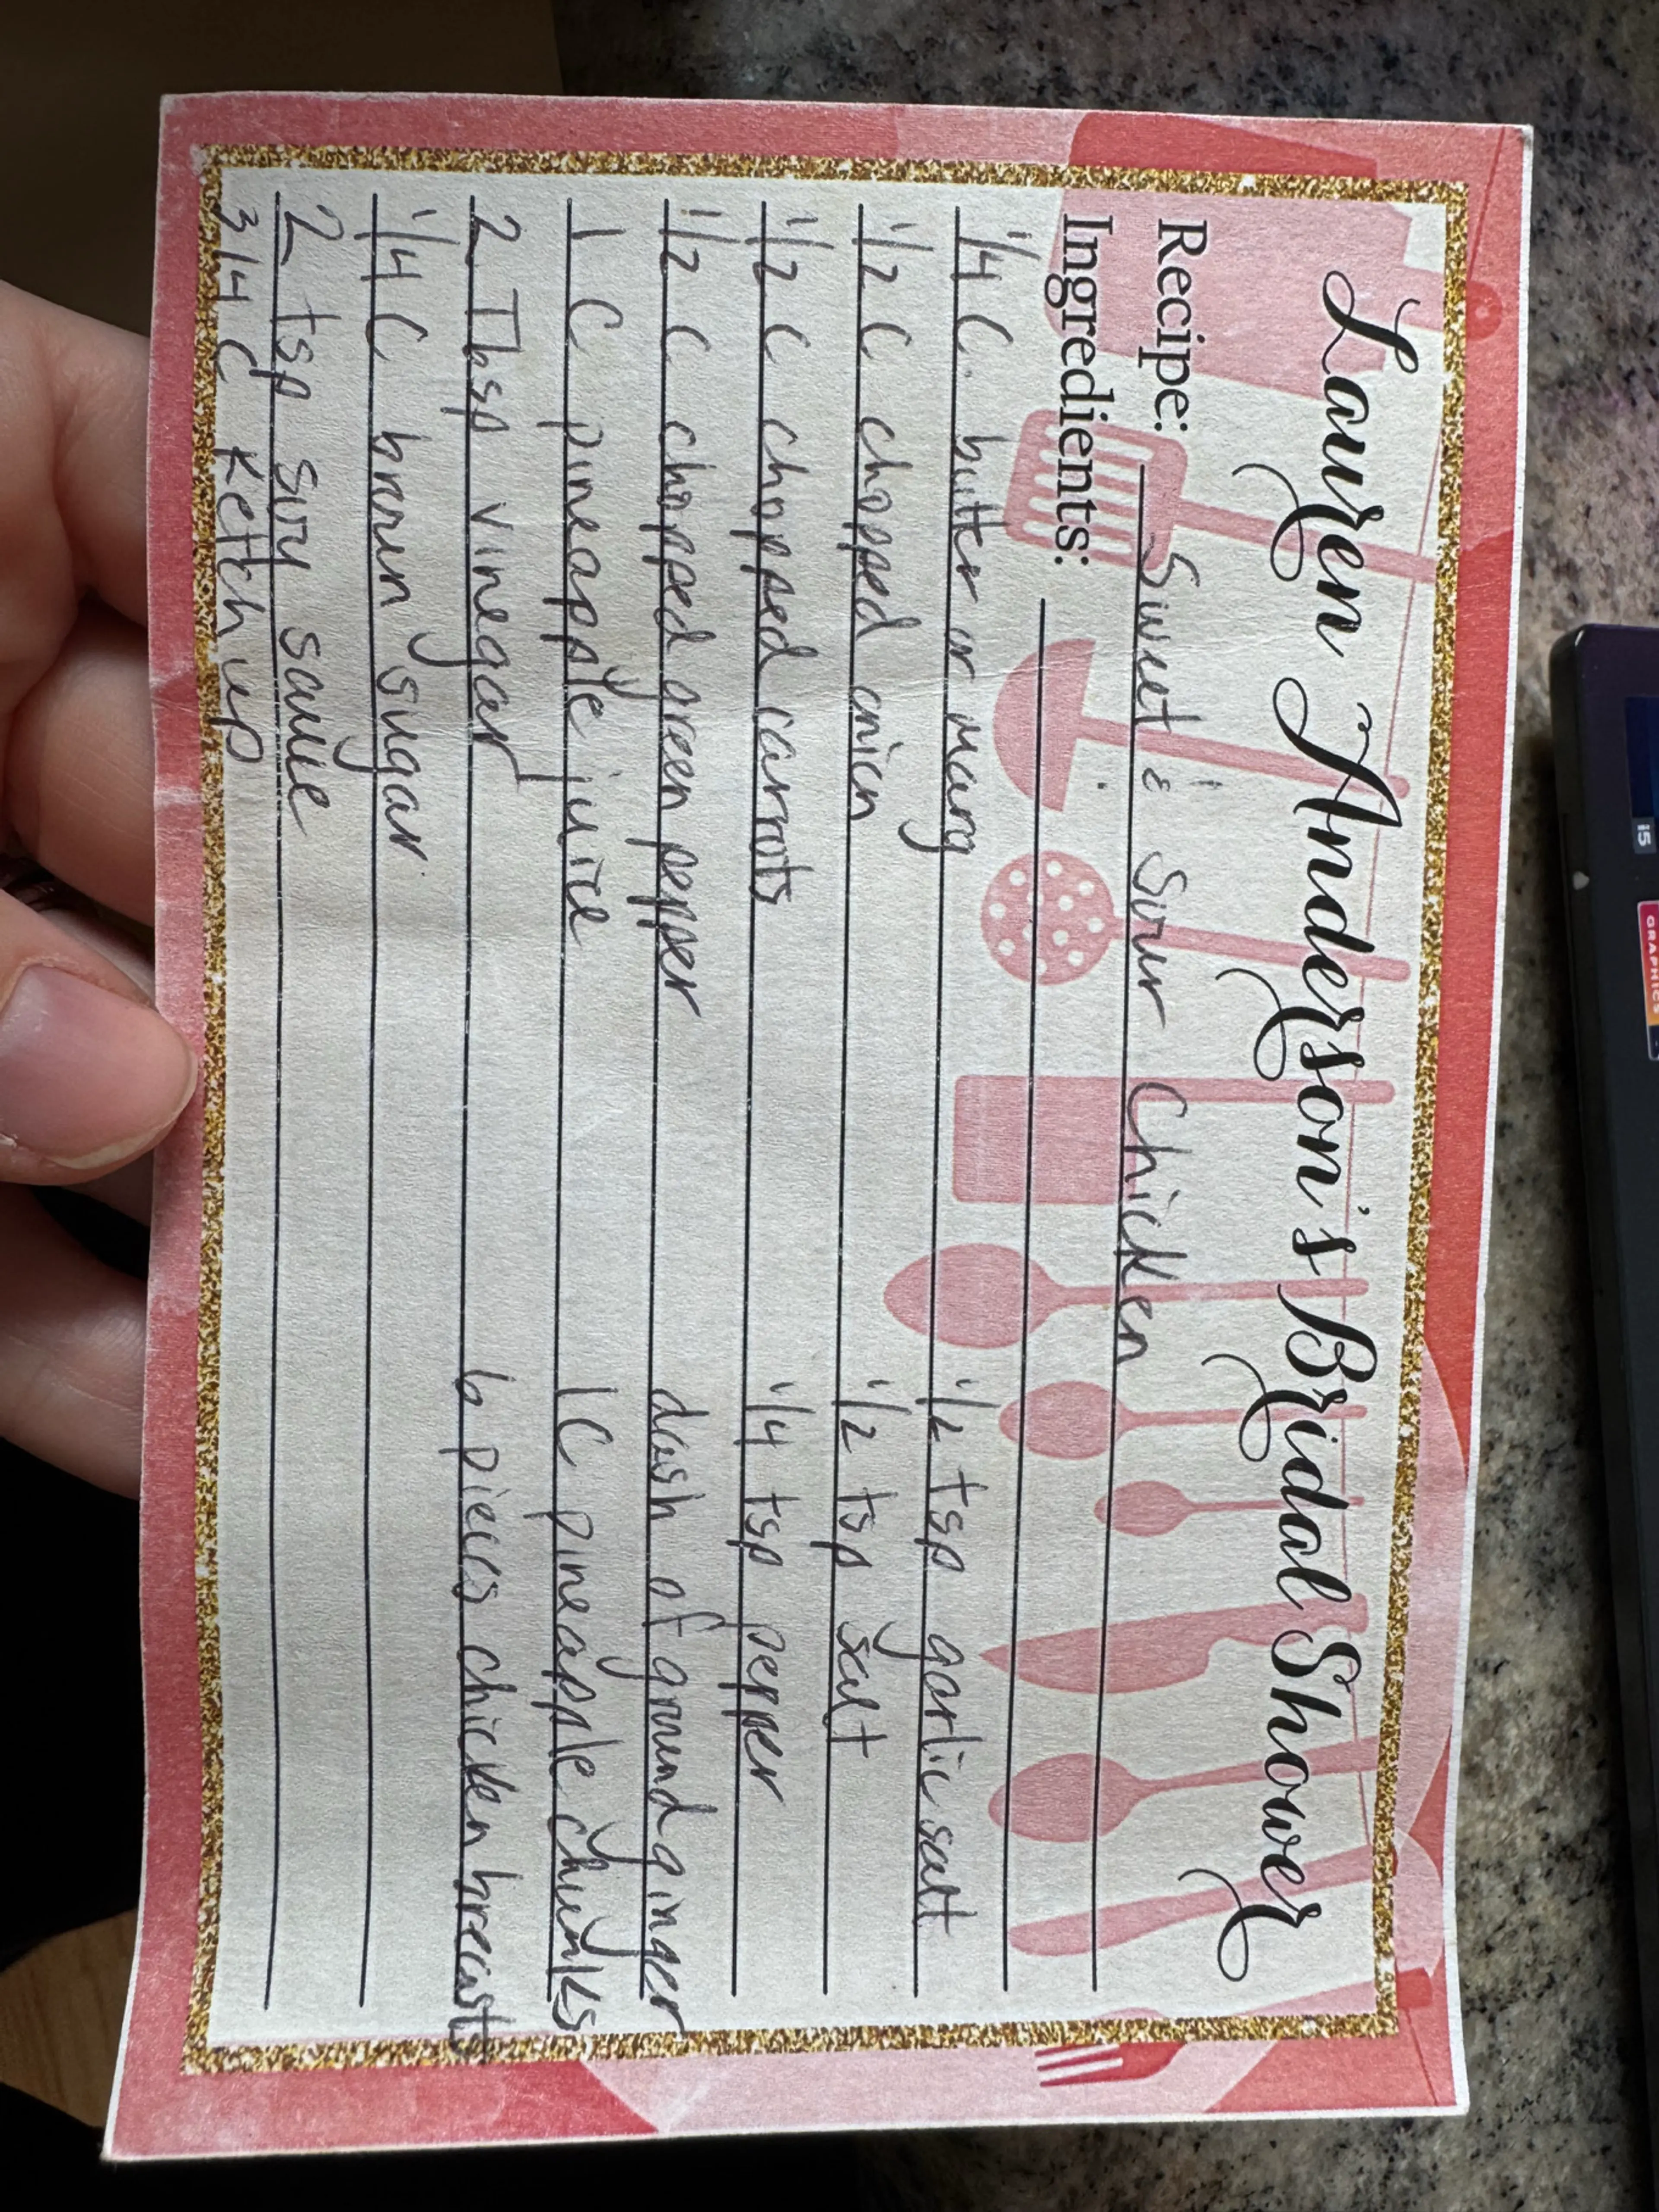 Lauren Anderson's Bridal Shower
Recipe: Sweet & Sour Chicken
Ingredients:
1/4 C. butter or marg
1/2 C chopped onion
1/2 C chopped carrots
1/2 C chopped green pepper
1 C pineapple juice
2 Tbsp vinegar
1/4 C brown sugar
2 tsp soy sauce
3/4 C Ketchup
1/2 tsp garlic salt
1/2 tsp salt
1/4 tsp pepper
dash of ground ginger
1 C pineapple chunks
6 pieces chicken breasts
i5
GRAPHICS